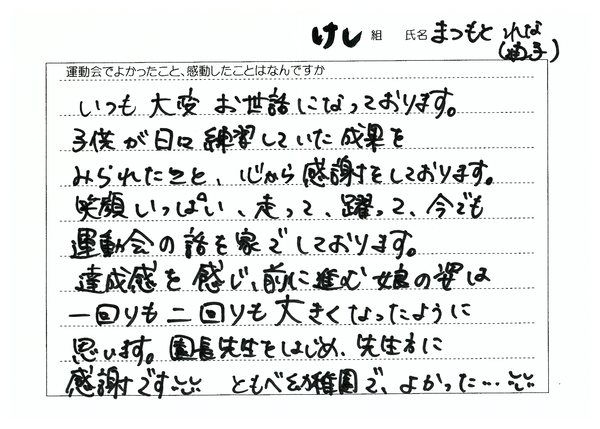 けし 組 氏名 まつもと れな
運動会でよかったこと、感動したことはなんですか
いつも 大変 お世話になっております。
子供が日々練習していた成果を
みられたこと、心から感謝をしております。
笑顔いっぱい、走って、躍って、今でも
運動会の話を家でしております。
達成感を感じ、前に進む娘の姿は
一回りも二回りも大きくなったように
思います。園長先生をはじめ、先生方に
感謝です ともべ幼稚園で、よかった…